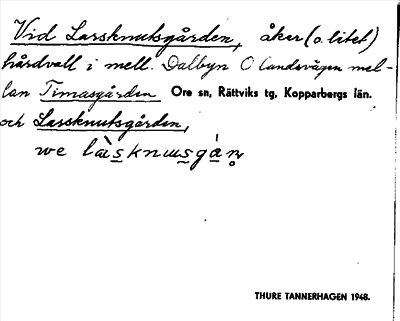 Vid Larsknutsgården, åker (o. litet)
hårdvall i mell. Dalbyn O landsvägen mel-
lan Timasgården Ore sn, Rättviks tg, Kopparbergs län.
och Lassknutsgården,
we
THURE TANNERHAGEN 1948.